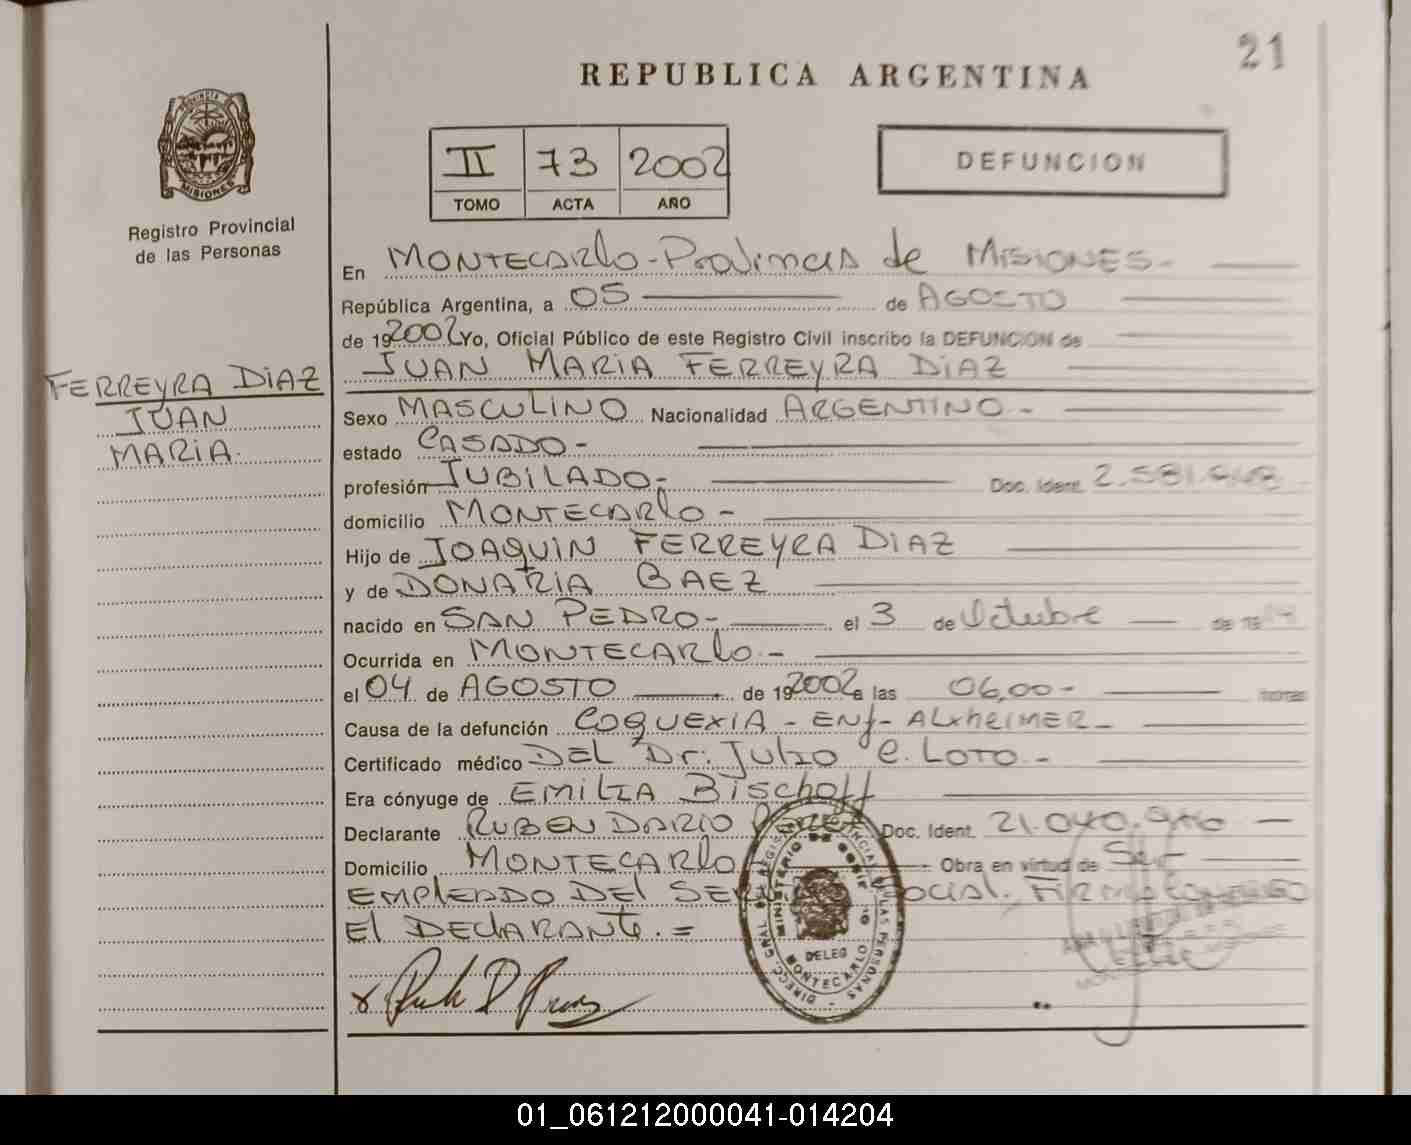 21
REPUBLICA ARGENTINA
II 73 2002
TOMO ACTA AÑO
DEFUNCION
PROVINCIA
MISIONES
Registro Provincial
de las Personas
FERREYRA DIAZ
JUAN
MARIA.
En MONTECARlo - Provincia de MISIONES -
República Argentina, a 05 de AGOSTO
de 192002 Yo, Oficial Público de este Registro Civil inscribo la DEFUNCION de
JUAN MARIA FERREYRA DIAZ
Sexo MASCULINO Nacionalidad ARGENTINO -
estado CASADO -
profesión JUBILADO - Doc. Ident.
domicilio MONTECARlo -
Hijo de JOAQUIN FERREYRA DIAZ
y de DONARIA BAEZ
nacido en SAN PEDRO - el 3 de Octubre de
Ocurrida en MONTECARlo -
el 04 de AGOSTO de 192002 a las 06,00 - horas
Causa de la defunción COQUEXIA - ENf - ALxheiMER -
Certificado médico DEL Dr. Julio C. LOTO -
Era cónyuge de EMILIA Bischoff
Declarante RUBEN DARIO Doc. Ident. 21.040.
Domicilio MONTECARlo Obra en virtud de Ser
EMPLEADO DEL SOCIAL. FIRMA CONMIGO
El DEClARANTE. =
DIRECC. GRAL. DEL REGISTRO PROVINCIAL DE LAS PERSONAS
MINISTERIO DE GOBIERNO
DELEG
MONTECARLO
01_061212000041-014204